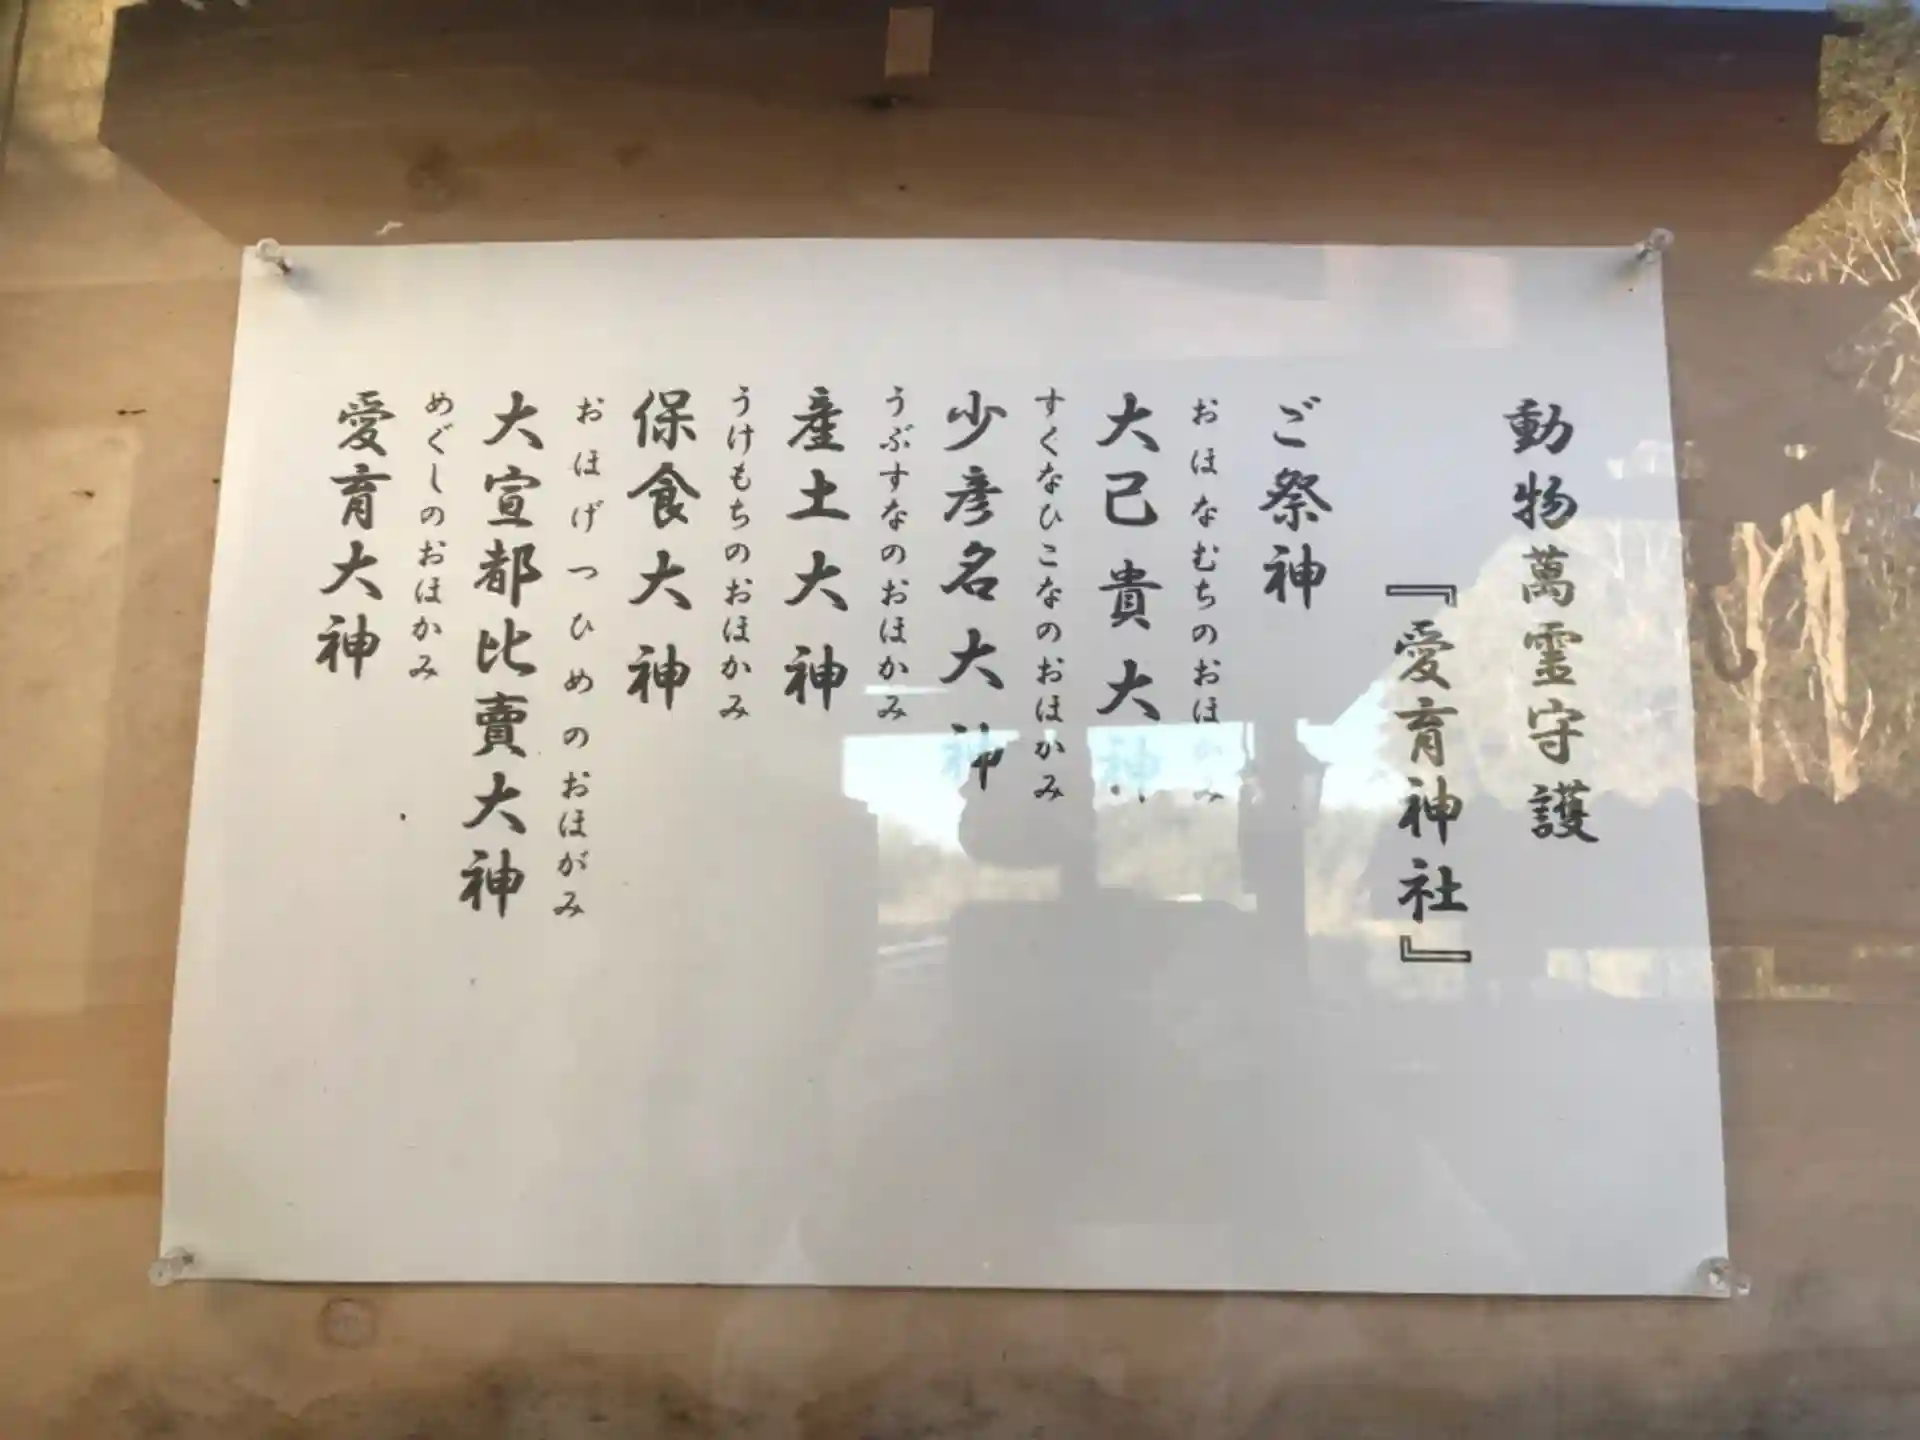 動物萬霊守護
『愛育神社』
ご祭神
おほなむちのおほかみ
大己貴大神
すくなひこなのおほかみ
少彦名大神
うぶすなのおほかみ
産土大神
うけもちのおほかみ
保食大神
おほげつひめのおほがみ
大宣都比賣大神
めぐしのおほかみ
愛育大神